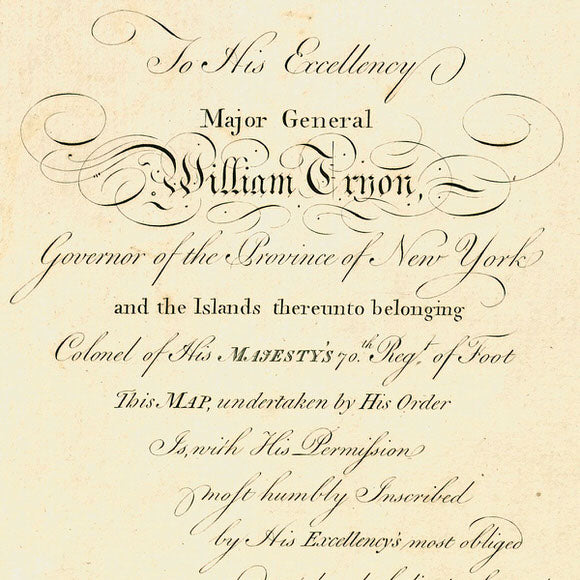 To His Excellency
Major General
William Tryon,
Governor of the Province of New York
and the Islands thereunto belonging
Colonel of His MAJESTY'S 70.th Reg.t of Foot
This MAP, undertaken by His Order
Is, with His Permiſsion
moſt humbly Inscribed
by His Excellency's most obliged